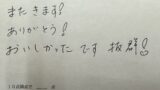 また きます!
ありがとう!
おいしかった です 抜群!